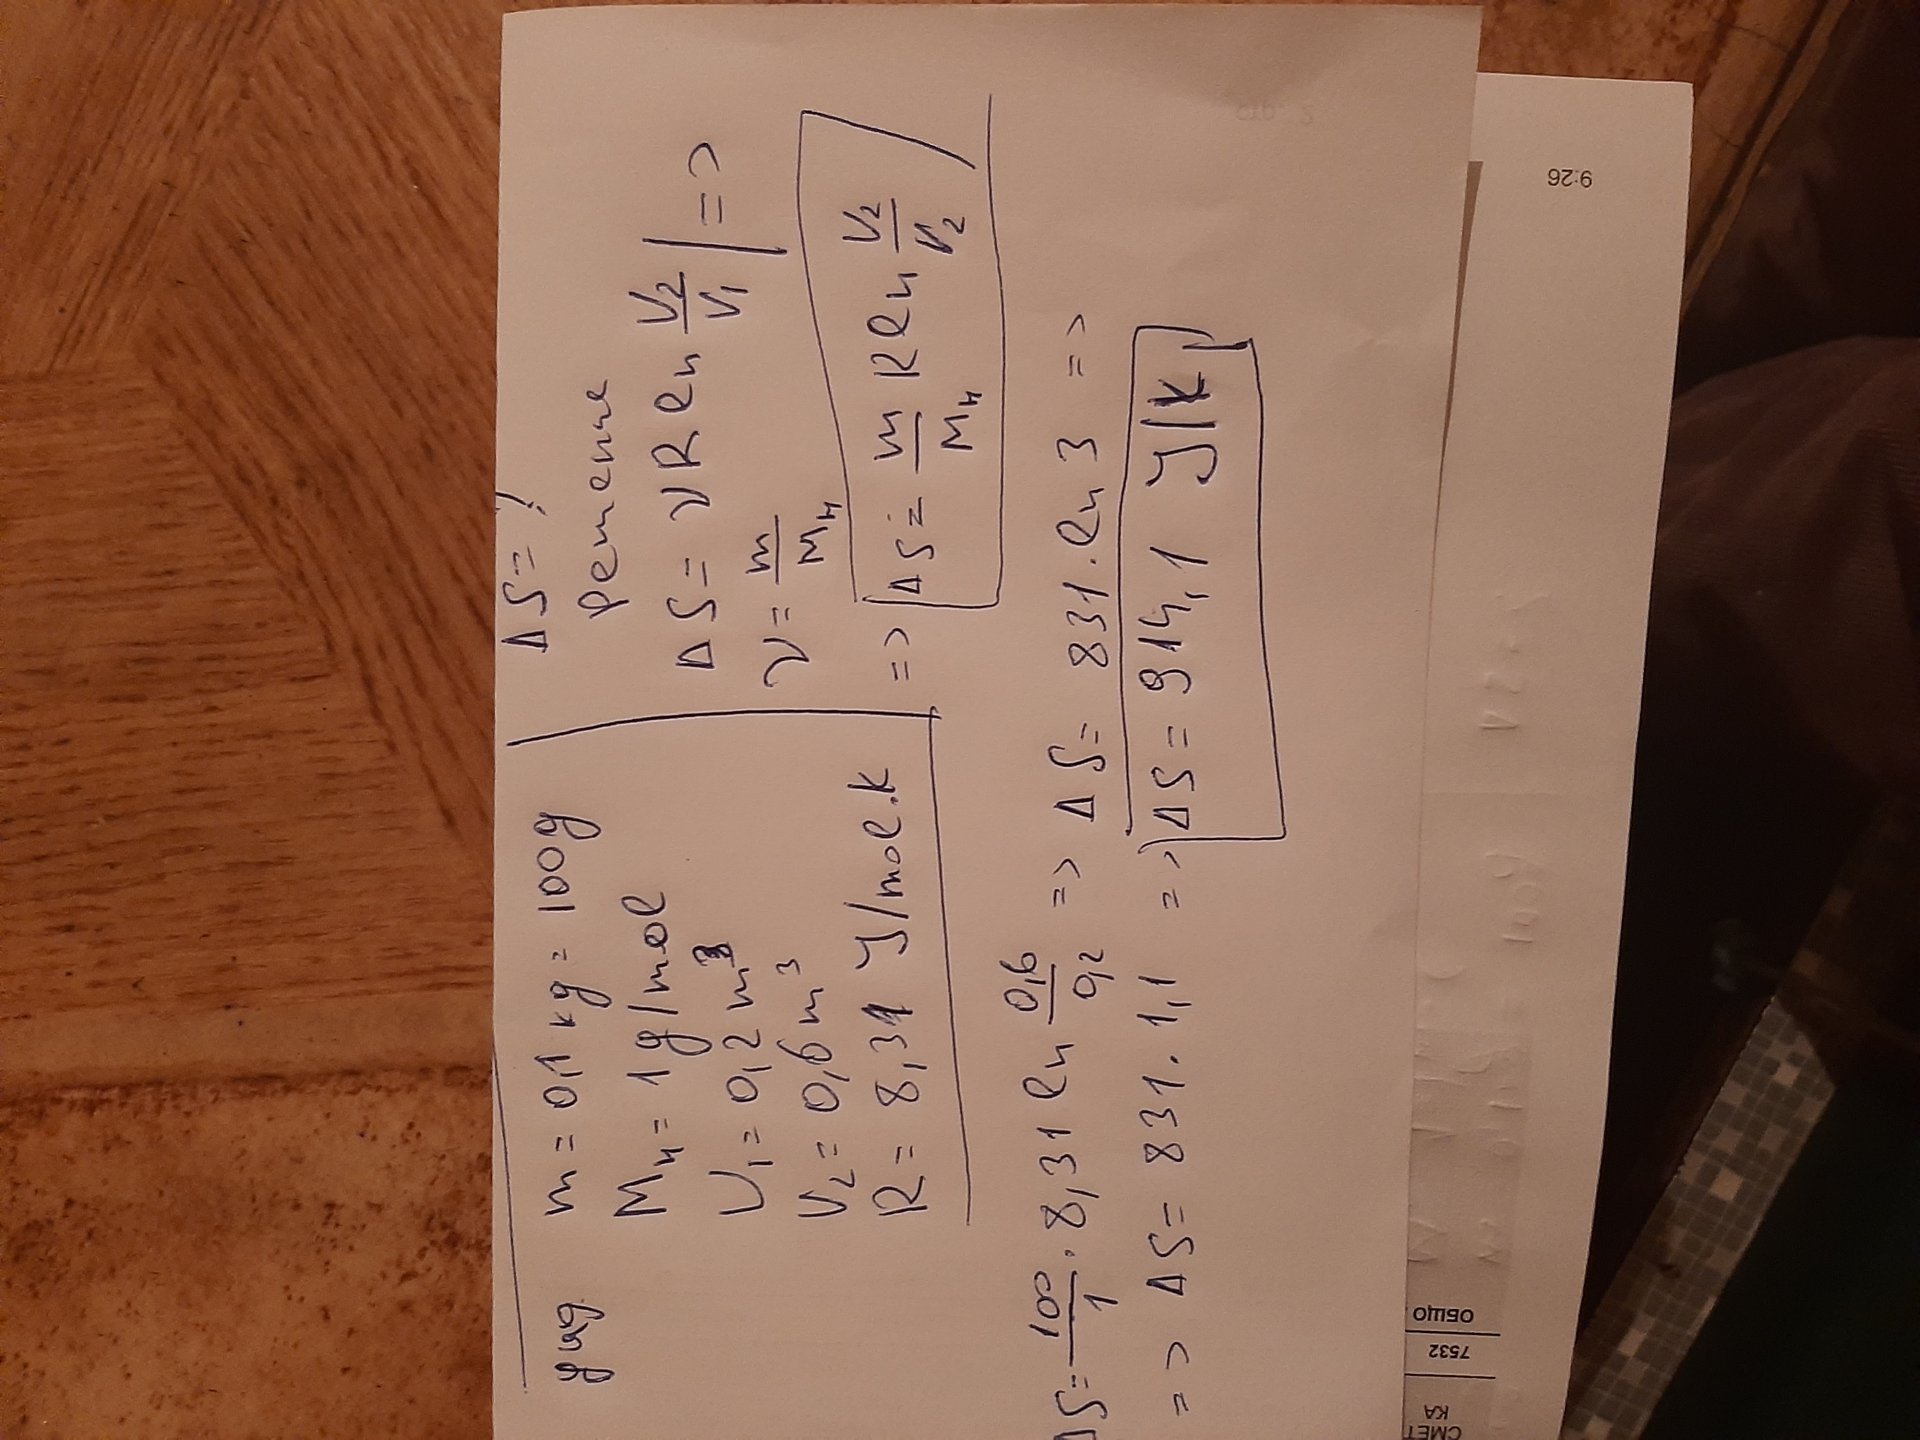 дид
m = 0,1 kg = 100g
Mн = 1 g/mol
V₁ = 0,2 m³
V₂ = 0,6 m³
R = 8,31 J/mol.K
ΔS = ?
Решение
ΔS = νR ln V₂/V₁ | =>
ν = m/Mн
=> ΔS = m/Mн R ln V₂/V₂
ΔS = 100/1 . 8,31 ln 0,6/0,2 => ΔS = 831. ln 3 =>
=> ΔS = 831. 1,1 => ΔS = 914,1 J/K
9:26
СМЕТ
КА
7532
ОБЩО